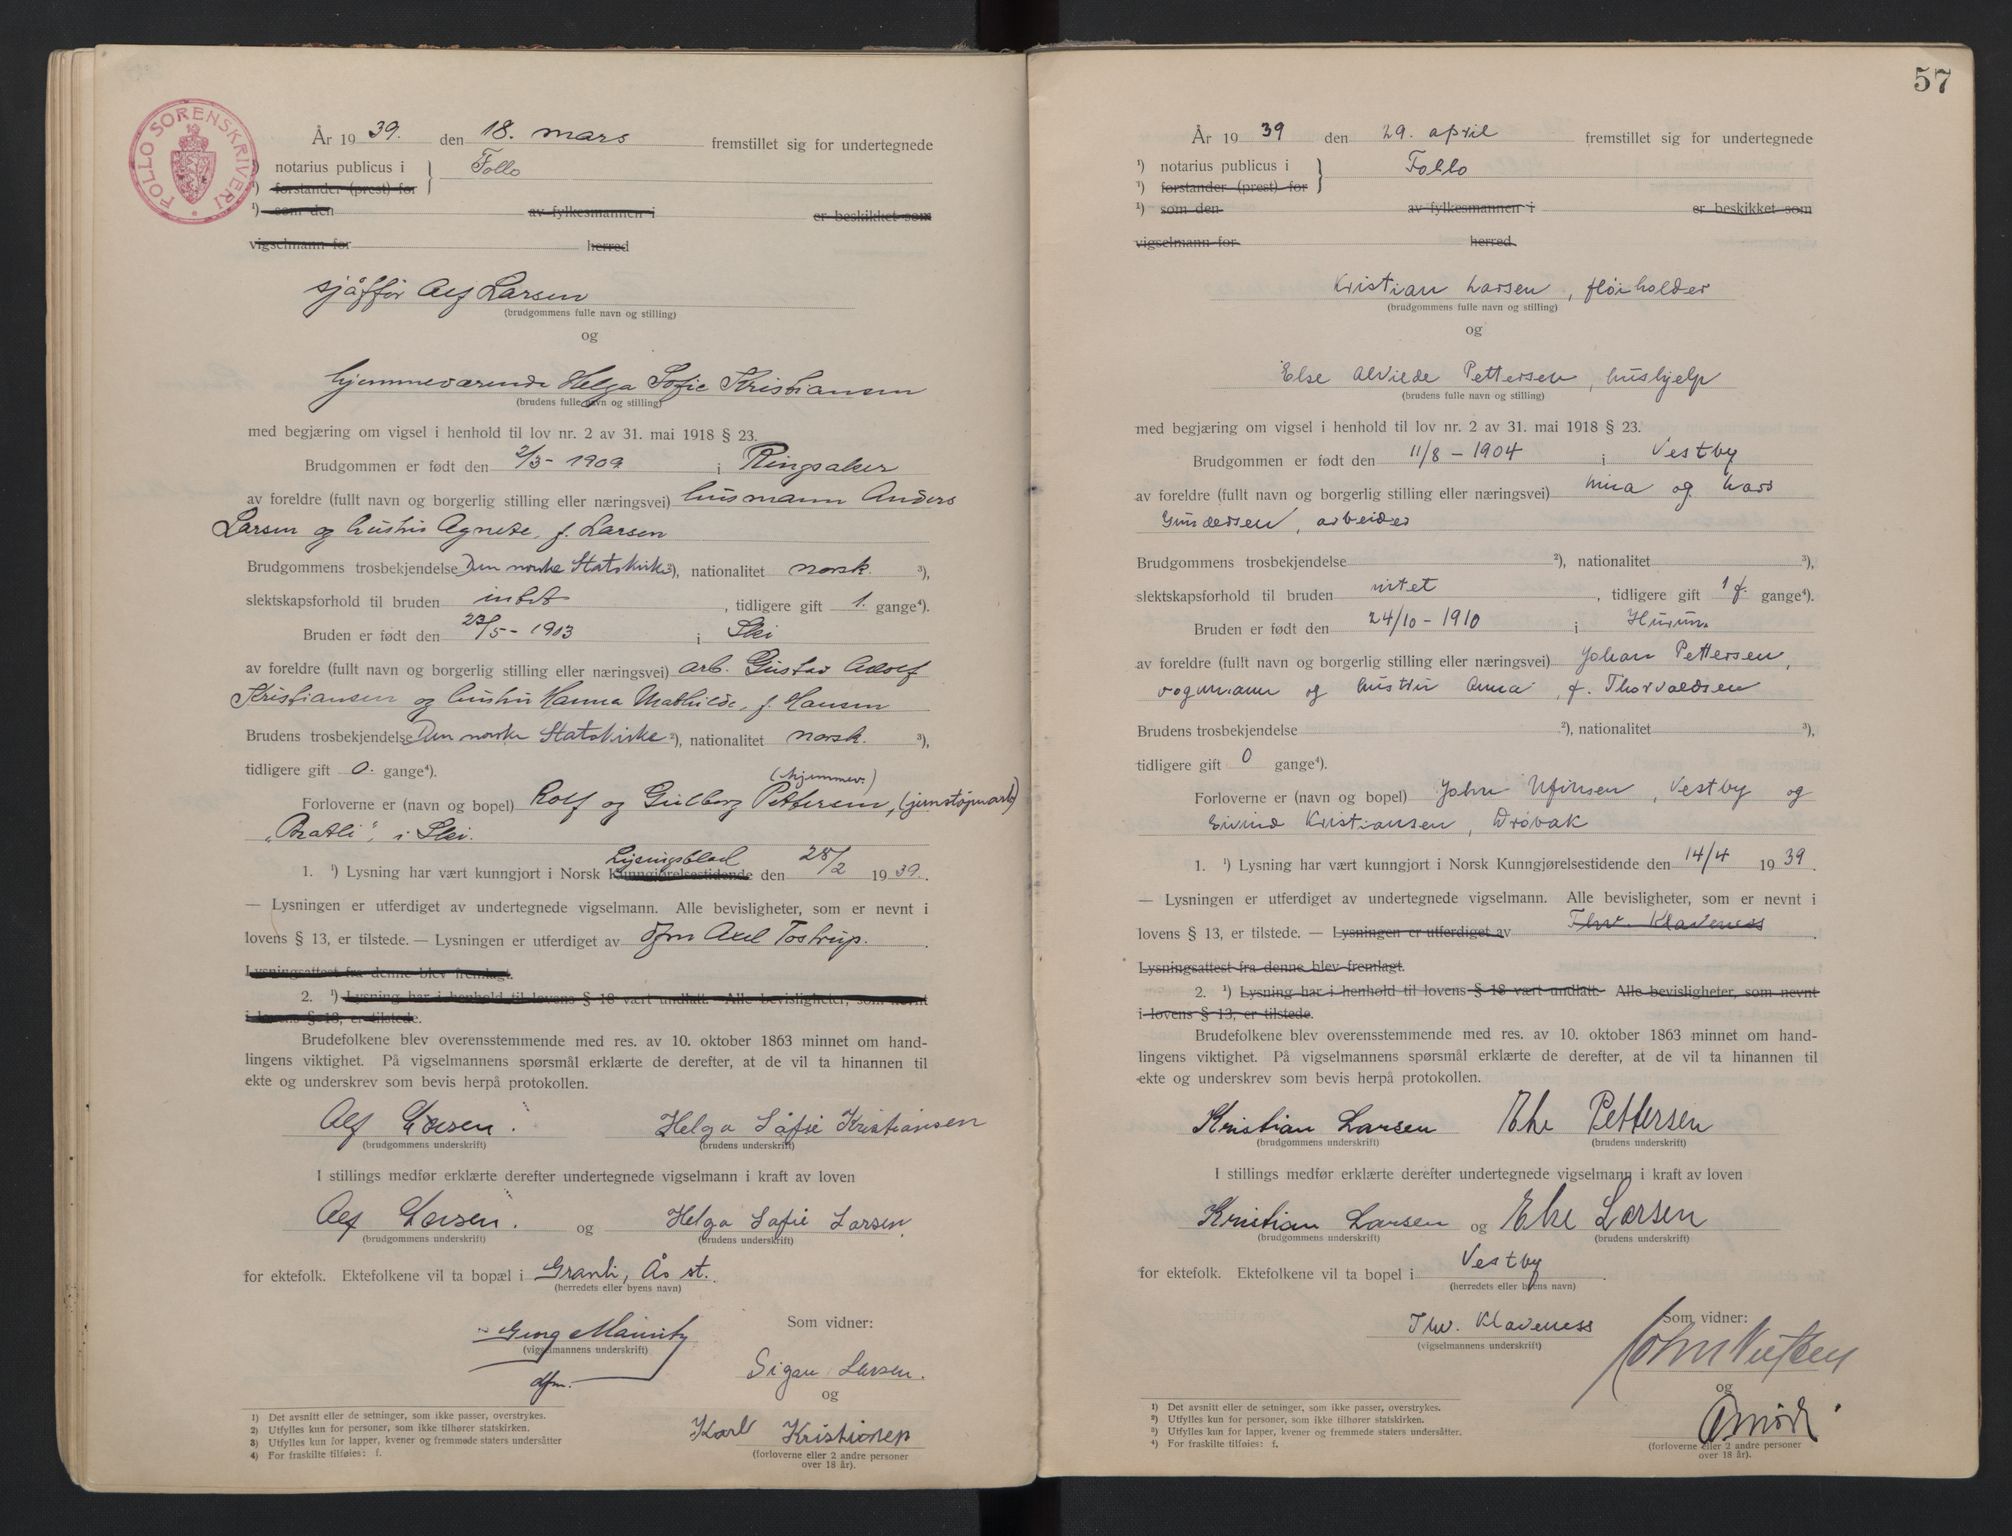 FOLLO SORENSKRIVERI
År 1939. den 18. mars fremstillet sig for undertegnede
¹) notarius publicus i } Follo
¹) forstander (prest) for
¹) som den av fylkesmannen i er beskikket som
vigselmann for herred
sjåffør Alf Larsen
(brudgommens fulle navn og stilling)
og
hjemmeværende Helga Sofie Kristiansen
(brudens fulle navn og stilling)
med begjæring om vigsel i henhold til lov nr. 2 av 31. mai 1918 § 23.
Brudgommen er født den 2/3 - 1909 i Ringsaker
av foreldre (fullt navn og borgerlig stilling eller næringsvei) husmann Anders
Larsen og hustru Agnete, f. Larsen
Brudgommens trosbekjendelse Den norske Statskirke ²), nationalitet norsk. ³),
slektskapsforhold til bruden intet, tidligere gift 1. gange⁴).
Bruden er født den 23/5 - 1913 i Skei
av foreldre (fullt navn og borgerlig stilling eller næringsvei) arb. Gustav Adolf
Kristiansen og hustru Hanna Mathilde, f. Hansen
Brudens trosbekjendelse Den norske Statskirke ²), nationalitet norsk. ³),
tidligere gift 0. gange⁴).
(hjemmev.)
Forloverne er (navn og bopel) Rolf og Gulborg Pettersen, (jernstøpmarb)
"Bratli", i Skei.
Lysningsblad
1. ¹) Lysning har vært kunngjort i Norsk Kunngjørelsestidende den 28/2 1939.
— Lysningen er utferdiget av undertegnede vigselmann. Alle bevisligheter, som er nevnt i
lovens § 13, er tilstede. — Lysningen er utferdiget av dfm Axel Tostrup.
Lysningsattest fra denne blev fremlagt.
2. ¹) Lysning har i henhold til lovens § 18 vært undlatt. Alle bevisligheter, som nevnt
i lovens § 13, er tilstede.
Brudefolkene blev overensstemmende med res. av 10. oktober 1863 minnet om hand-
lingens viktighet. På vigselmannens spørsmål erklærte de derefter, at de vil ta hinannen til
ekte og underskrev som bevis herpå protokollen.
Alf Larsen. Helga Sofie Kristiansen
(brudgommens underskrift) (brudens underskrift)
I stillings medfør erklærte derefter undertegnede vigselmann i kraft av loven
Alf Larsen. og Helga Sofie Larsen.
(brudgommens underskrift) (brudens underskrift)
for ektefolk. Ektefolkene vil ta bopæl i Granli, Ås st.
(herredets eller byens navn)
Georg
(vigselmannens underskrift)
dfm.
Som vidner:
Sigan Larsen.
og
Karl
(forloverne eller 2 andre personer
over 18 år).
1) Det avsnitt eller de setninger, som ikke passer, overstrykes.
2) Utfylles kun for personer, som ikke tilhører statskirken.
3) Utfylles kun for lapper, kvener og fremmede staters undersåtter
4) For fraskilte tilføies: f.
57
År 1939 den 29. april fremstillet sig for undertegnede
¹) notarius publicus i } Follo
¹) forstander (prest) for
¹) som den av fylkesmannen i er beskikket som
vigselmann for herred.
Kristian Larsen, fløiholder
(brudgommens fulle navn og stilling)
og
Else Alvilde Pettersen, hushjelp
(brudens fulle navn og stilling)
med begjæring om vigsel i henhold til lov nr. 2 av 31. mai 1918 § 23.
Brudgommen er født den 11/8 - 1904 i Vestby
av foreldre (fullt navn og borgerlig stilling eller næringsvei) og Lars
Gundersen, arbeider
Brudgommens trosbekjendelse ²), nationalitet ³),
slektskapsforhold til bruden intet, tidligere gift 1 f. gange⁴).
Bruden er født den 24/10 - 1910 i Hurum
av foreldre (fullt navn og borgerlig stilling eller næringsvei) Johan Pettersen,
vognmann og hustru Anna, f. Thorvaldsen
Brudens trosbekjendelse ²), nationalitet ³),
tidligere gift 0 gange⁴).
Forloverne er (navn og bopel) John, Vestby og
Eivind Kristiansen, Drøbak
1. ¹) Lysning har vært kunngjort i Norsk Kunngjørelsestidende den 14/4 1939
— Lysningen er utferdiget av undertegnede vigselmann. Alle bevisligheter, som er nevnt i
lovens § 13, er tilstede. — Lysningen er utferdiget av Thv. Klaveness
Lysningsattest fra denne blev fremlagt.
2. ¹) Lysning har i henhold til lovens § 18 vært undlatt. Alle bevisligheter, som nevnt
i lovens § 13, er tilstede.
Brudefolkene blev overensstemmende med res. av 10. oktober 1863 minnet om hand-
lingens viktighet. På vigselmannens spørsmål erklærte de derefter, at de vil ta hinannen til
ekte og underskrev som bevis herpå protokollen.
Kristian Larsen Else Pettersen
(brudgommens underskrift) (brudens underskrift)
I stillings medfør erklærte derefter undertegnede vigselmann i kraft av loven
Kristian Larsen og Else Larsen
(brudgommens underskrift) (brudens underskrift)
for ektefolk. Ektefolkene vil ta bopel i Vestby
(herredets eller byens navn)
Thv. Klaveness
(vigselmannens underskrift)
Som vidner:
John
og
(forloverne eller 2 andre personer
over 18 år).
¹) Det avsnitt eller de setninger, som ikke passer, overstrykes.
²) Utfylles kun for personer, som ikke tilhører statskirken.
³) Utfylles kun for lapper, kvener og fremmede staters undersåtter.
⁴) For fraskilte tilføies: f.